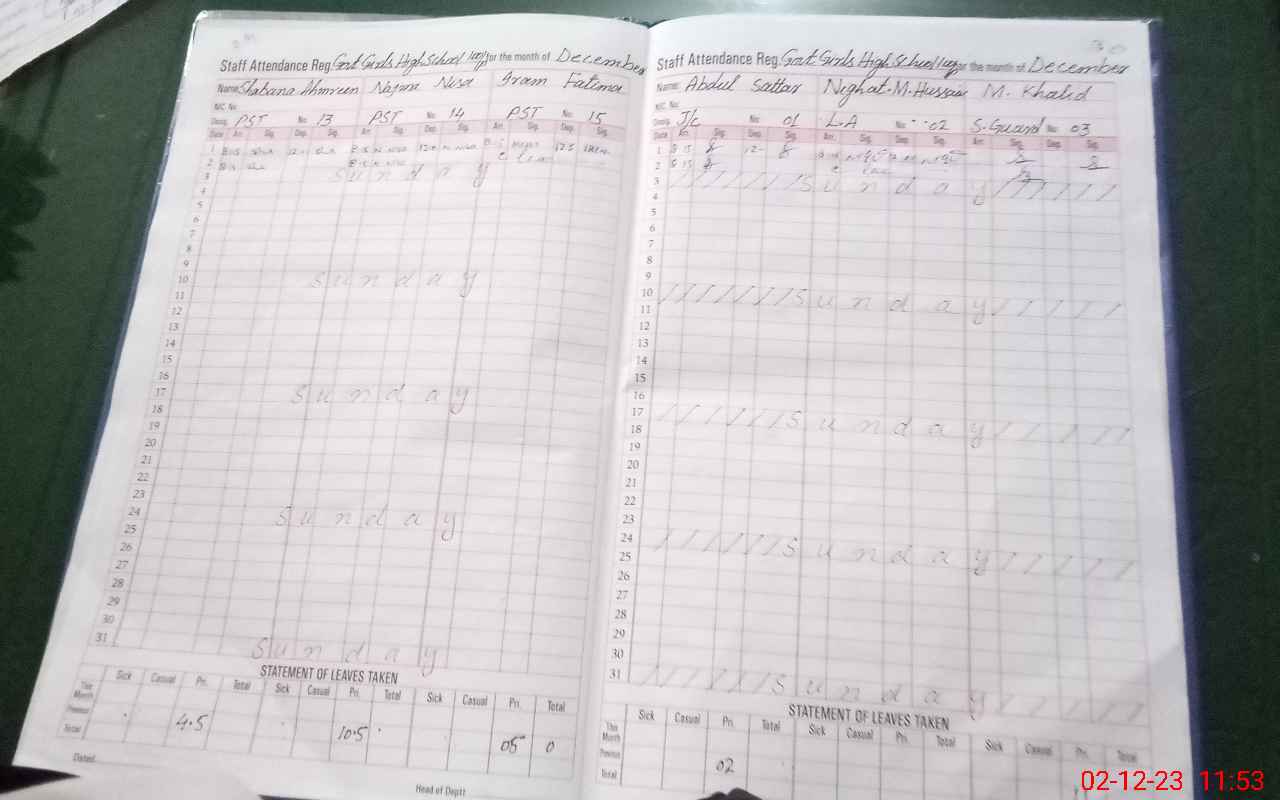 Staff Attendance Reg. Govt Girls High School for the month of December
Name: Shabana Ahmreen Najma Nisa Iram Fatima
NIC No.
Desig. PST No. 13 PST No. 14 PST No. 15
Date Arr. Sig. Dep. Sig. Arr. Sig. Dep. Sig. Arr. Sig. Dep. Sig.
1
2
3 Sunday
4
5
6
7
8
9
10 Sunday
11
12
13
14
15
16
17 Sunday
18
19
20
21
22
23
24 Sunday
25
26
27
28
29
30
31 Sunday
STATEMENT OF LEAVES TAKEN
Sick Casual Pri. Total Sick Casual Pri. Total Sick Casual Pri. Total
This Month
Previous 4.5 10.5 05 0
Total
Dated
Head of Deptt
Staff Attendance Reg. Govt Girls High School for the month of December
Name: Abdul Sattar Nighat.M.Hussain M. Khalid
NIC No.
Desig. J/c No. 01 L.A No. 02 S.Guard No. 03
Date Arr. Sig. Dep. Sig. Arr. Sig. Dep. Sig. Arr. Sig. Dep. Sig.
1 8 15 12-
2 8 15
3 Sunday
4
5
6
7
8
9
10 Sunday
11
12
13
14
15
16
17 Sunday
18
19
20
21
22
23
24 Sunday
25
26
27
28
29
30
31 Sunday
STATEMENT OF LEAVES TAKEN
Sick Casual Pri. Total Sick Casual Pri. Total Sick Casual Pri. Total
This Month
Previous 02
Total
02-12-23 11:53